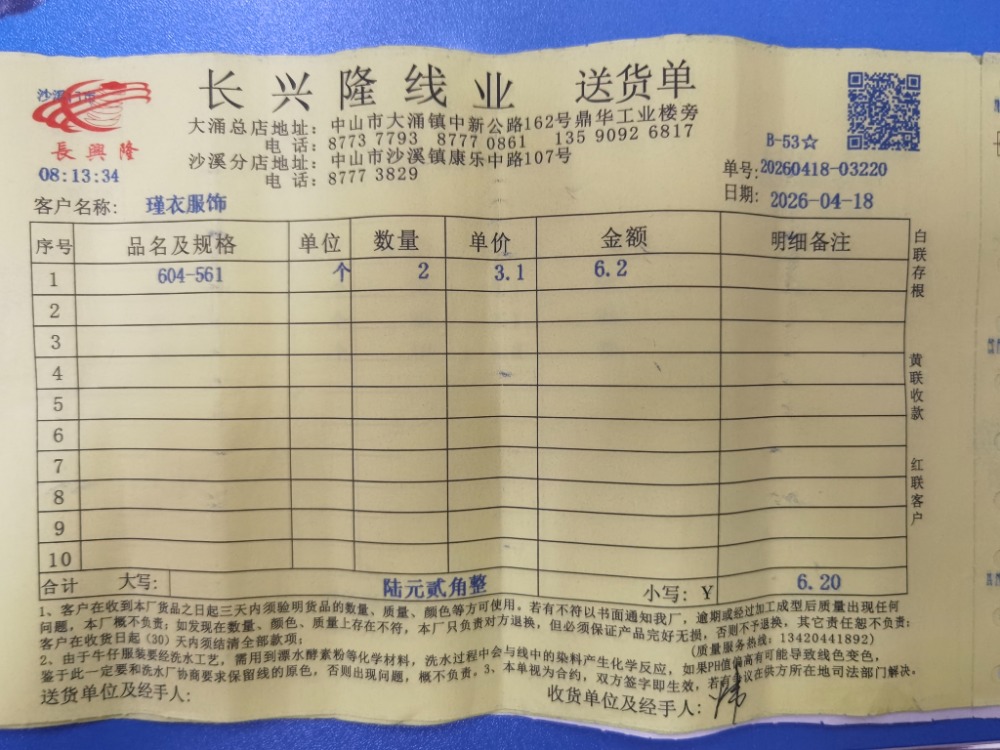 长兴隆线业 送货单
沙溪
長興隆
08:13:34
大涌总店地址：中山市大涌镇中新公路162号鼎华工业楼旁
电 话：8773 7793 8777 0861 135 9092 6817
沙溪分店地址：中山市沙溪镇康乐中路107号
电 话：8777 3829
B-53☆
单号:20260418-03220
日期: 2026-04-18
客户名称: 瑾衣服饰
序号 品名及规格 单位 数量 单价 金额 明细备注
1 604-561 个 2 3.1 6.2
2
3
4
5
6
7
8
9
10
合计 大写: 陆元贰角整 小写: Y 6.20
白联存根
黄联收款
红联客户
1、客户在收到本厂货品之日起三天内须验明货品的数量、质量、颜色等方可使用。若有不符以书面通知我厂，逾期或经过加工成型后质量出现任何
问题，本厂概不负责；如发现在数量、颜色、质量上存在不符，本厂只负责对方退换，但必须保证产品完好无损，否则不予退换，其它责任恕不负责；
客户在收货日起（30）天内须结清全部款项；
(质量服务热线：13420441892)
2、由于牛仔服装要经洗水工艺，需用到漂水酵素粉等化学材料，洗水过程中会与线中的染料产生化学反应，如果PH值偏高有可能导致线色变色，
鉴于此一定要和洗水厂协商要求保留线的原色，否则出现问题，概不负责。3、本单视为合约，双方签字即生效，若有争议在供方所在地司法部门解决。
送货单位及经手人: 收货单位及经手人: